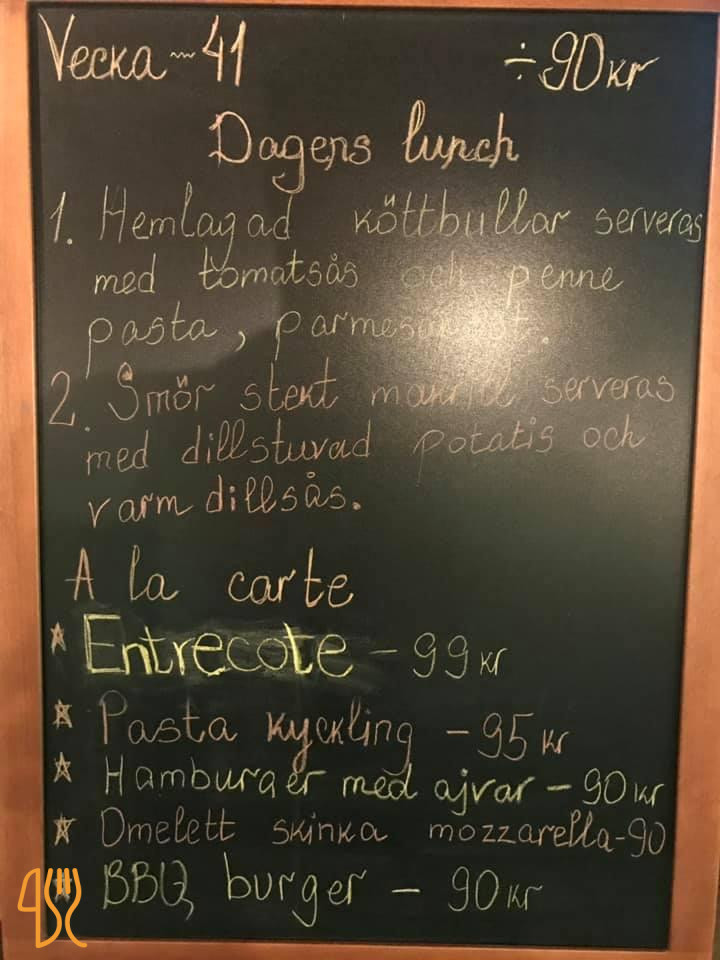 Vecka ~ 41 ÷90kr
Dagens lunch
1. Hemlagad köttbullar serveras
med tomatsås och penne
pasta, parmesanost.
2. Smör stekt makrill serveras
med dillstuvad potatis och
varm dillsås.
A la carte
Entrecote - 99 kr
Pasta kyckling - 95 kr
Hamburger med ajvar - 90 kr
Omelett skinka mozzarella-90
BBQ burger - 90 kr